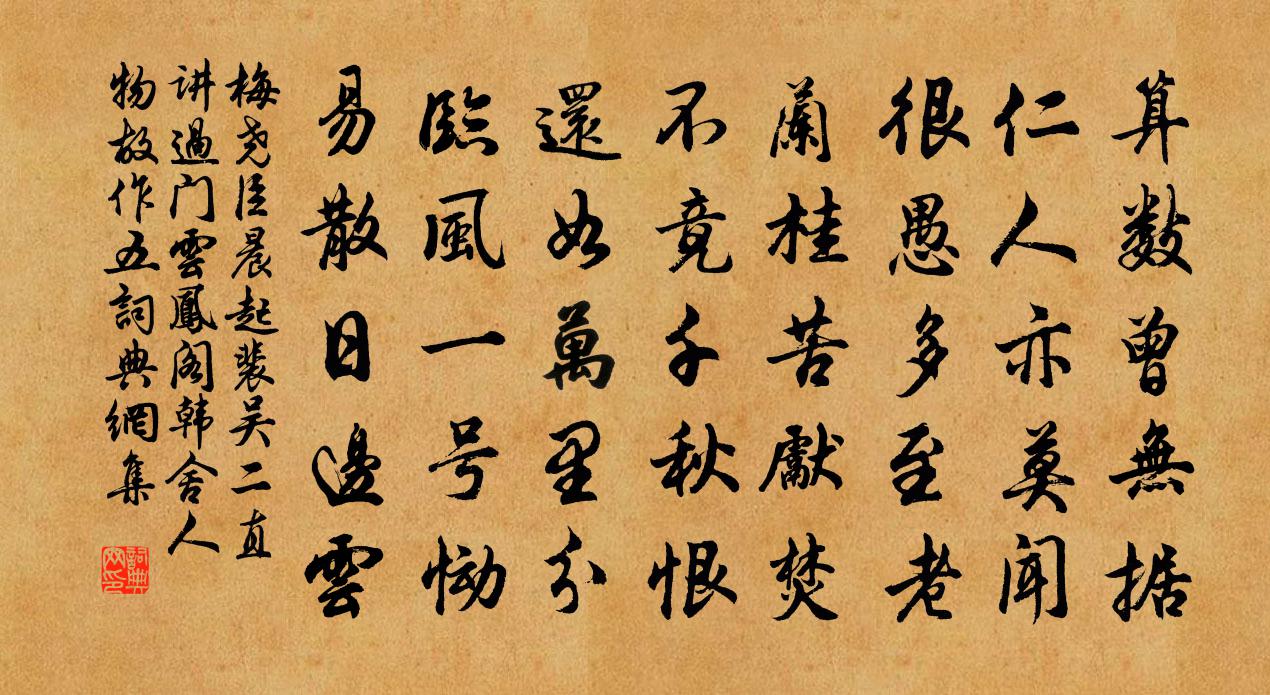 算數曾無據
仁人亦莫聞
很愚多至老
蘭桂苦獻焚
不竟千秋恨
還如萬里分
臨風一号恸
易散日邊雲
梅尧臣晨起裴吴二直
讲過门雲鳳阁韩舍人
物故作五詞典網集
詞典網印